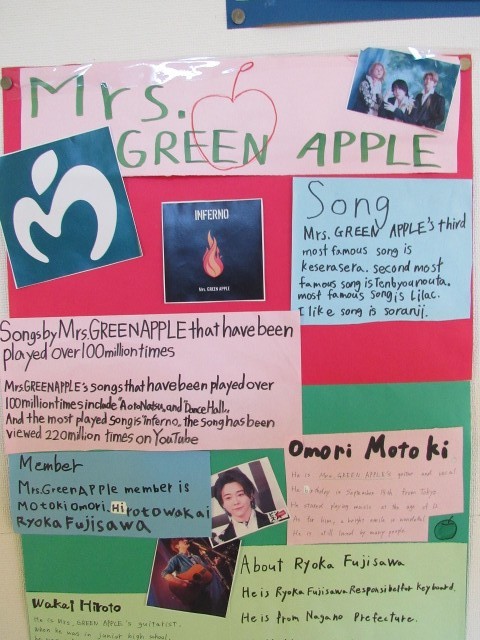 Mrs.
GREEN APPLE
INFERNO
Mrs. GREEN APPLE
Song
Mrs. GREEN APPLE's third
most famous song is
keserasera. second most
famous song is Tenbyounouta.
most famous song is Lilac.
I like song is soranji.
Songs by Mrs.GREEN APPLE that have been
played over 100 million times
Mrs.GREEN APPLE's songs that have been played over
100 million times include "Ao to Natsu, and "Dance Hall,
And the most played song is "inferno, the song has been
viewed 220 million times on YouTube
Member
Mrs.Green APPLE member is
Motoki omori. Hiroto wakai
Ryoka Fujisawa
Omori Motoki
He is Mrs. GREEN APPLE's guitar and vocal.
He is in September 14th from Tokyo
He started playing music at the age of
As for him, a bright smile is wonderful
He is still loved by many people.
About Ryoka Fujisawa
He is Ryoka Fujisawa Responsible for keyboard.
He is from Nagano Prefecture.
Wakai Hiroto
He is Mrs. GREEN APPLE's guitarist.
When he was in junior high school,